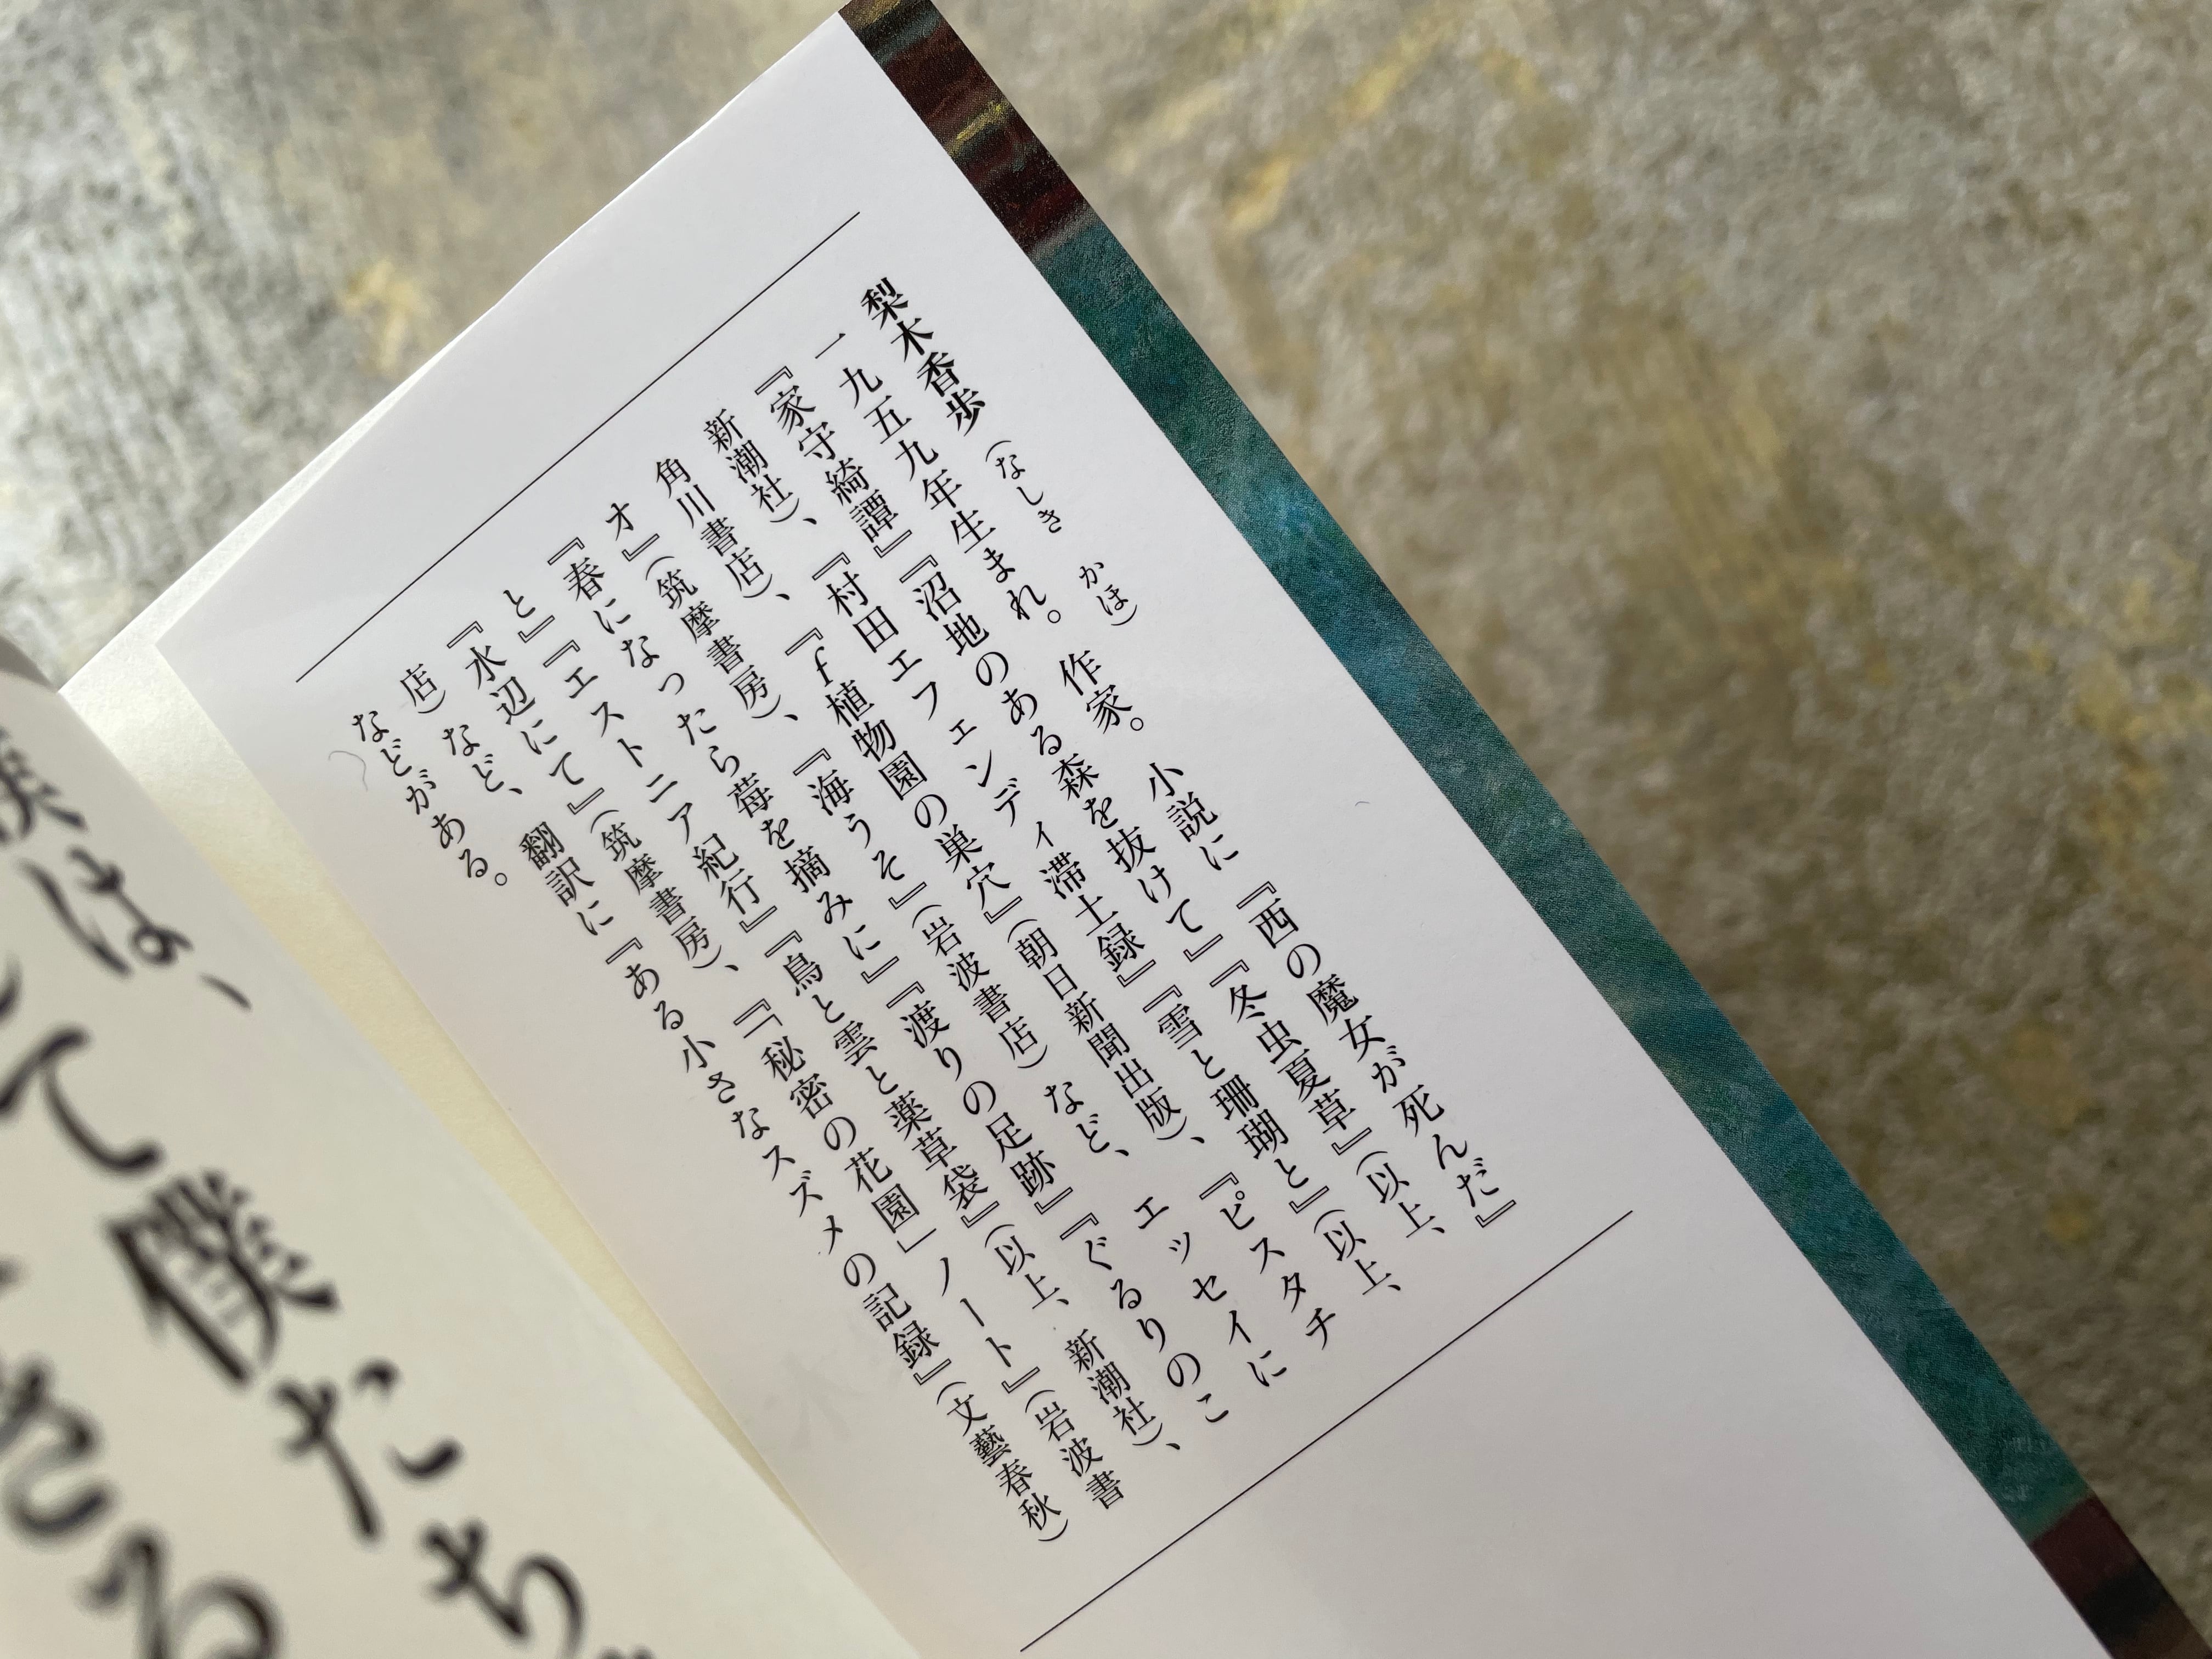 梨木香歩（なしき　かほ）
一九五九年生まれ。作家。小説に『西の魔女が死んだ』
『家守綺譚』『沼地のある森を抜けて』『冬虫夏草』（以上、
新潮社）、『村田エフェンディ滞土録』『雪と珊瑚と』（以上、
角川書店）、『f植物園の巣穴』（朝日新聞出版）、『ピスタチ
オ』（筑摩書房）、『海うそ』（岩波書店）など、エッセイに
『春になったら苺を摘みに』『渡りの足跡』『ぐるりのこ
と』『エストニア紀行』『鳥と雲と薬草袋』（以上、新潮社）、
『水辺にて』（筑摩書房）、『「秘密の花園」ノート』（岩波書
店）など、翻訳に『ある小さなスズメの記録』（文藝春秋）
などがある。
僕は、
て僕たち